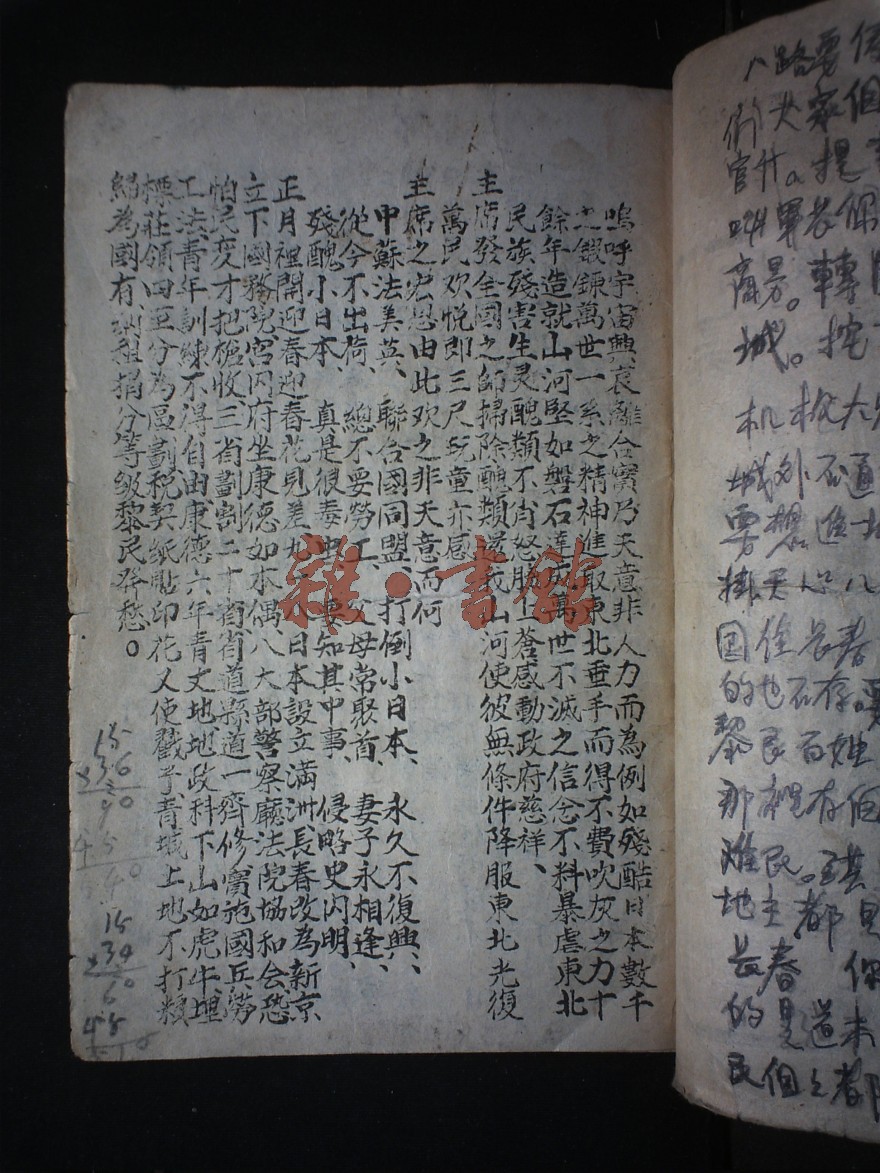 嗚呼宇宙興哀離合實乃天意非人力而為例如殘酷日本數千
之鍛鍊萬世一系之精神進取東北垂手而得不費吹灰之力十
餘年造就山河堅如磐石達成萬世不滅之信念不料暴虐東北
民族殘害生灵醜類不肖怒腾上蒼感動政府慈祥、
主席發全國之師掃除醜類還我山河使彼無條件降服東北光復
萬民欢悦即三尺玩童亦感
主席之宏恩由此欢之非天意而何
中蘇法美英、聯合國同盟、打倒小日本、永久不復興、
從今不出荷、總不要勞工、父母常聚首、妻子永相逢、
殘醜小日本、真是很毒虫、要知其中事、侵略史内明、
正月裡開迎春迎春花見差九一八小日本設立滿洲長春改為新京
立下國務院宮内府坐康德如木偶、八大部警察廳法院協和会恐
怕民変才把槍收、三省劃割二十省省道縣道一齊修實施國兵勞
工法青年訓練不得自由康德六年青丈地地政科下山如虎牛埋
標莊領四至分為區劃税契紙點印花又使戳子青城上地不打粮
為國有 租捐分等級黎民發愁。
15
×36
90
45
540
15
×34
60
45
雜·書館
八路要
們大家個
官什。提
叫軍長保
商量。轉
城。
机枪大
城外不通
要想進
掛天心八
国住長春
的也不存
黎民百姓
那裡存
难民。
地主都
長春
的見道未
民個之都